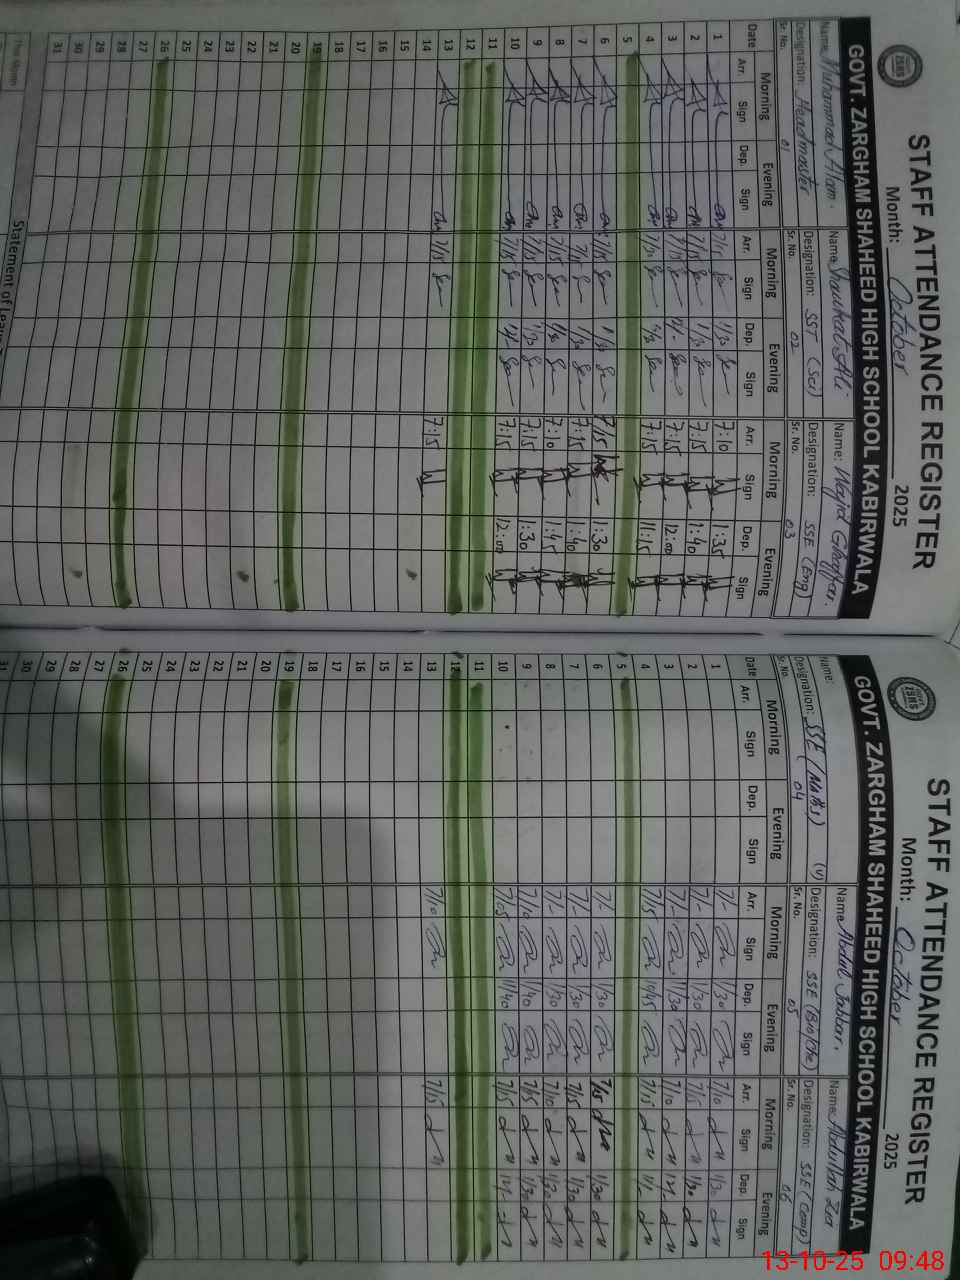 STAFF ATTENDANCE REGISTER
Month: October 2025
GOVT. ZARGHAM SHAHEED HIGH SCHOOL KABIRWALA
Name: Muhammad Alam. Name: Shaukat Ali Name: Wajid Ghaffar.
Designation: Headmaster Designation: SST (Sci) Designation: SSE (Eng)
Sr. No. 01 Sr. No. 02 Sr. No. 03
Date Morning Evening Morning Evening Morning Evening
Arr. Sign Dep. Sign Arr. Sign Dep. Sign Arr. Sign Dep. Sign
1 7/15 1/30 7:10 1:35
2 7/15 1/30 7:15 1:40
3 7/15 12/- 7:15 12:00
4 7/15 7:15 11:15
5
6 7/15 1/30 7/15 1:30
7 7/15 1/30 7:15 1:40
8 7/15 1/30 7:10 1:45
9 7/15 1/30 7:15 1:30
10 7/15 12/- 7:15 12:00
11
12
13 7/15 7:15
14
15
16
17
18
19
20
21
22
23
24
25
26
27
28
29
30
31
Statement of Leave
STAFF ATTENDANCE REGISTER
Month: October 2025
GOVT. ZARGHAM SHAHEED HIGH SCHOOL KABIRWALA
Name: Name: Abdul Jabbar. Name: Abdullah
Designation: SSE (Maths) (V) Designation: SSE (Bio/che) Designation: SSE (Comp)
Sr. No. 04 Sr. No. 05 Sr. No. 06
Date Morning Evening Morning Evening Morning Evening
Arr. Sign Dep. Sign Arr. Sign Dep. Sign Arr. Sign Dep. Sign
1 7/- 1/30 7/10 1/30
2 7/- 1/30 7/15 1/30
3 7/- 11/30 7/10 12/-
4 7/15 10/45 7/15 11/-
5
6 7/- 1/30 7/15 1/30
7 7/- 1/30 7/15 1/30
8 7/- 1/30 7/10 1/30
9 7/10 1/40 7/15 1/30
10 7/05 11/40 7/15 12/-
11
12
13 7/10 7/15
14
15
16
17
18
19
20
21
22
23
24
25
26
27
28
29
30
31
13-10-25 09:48